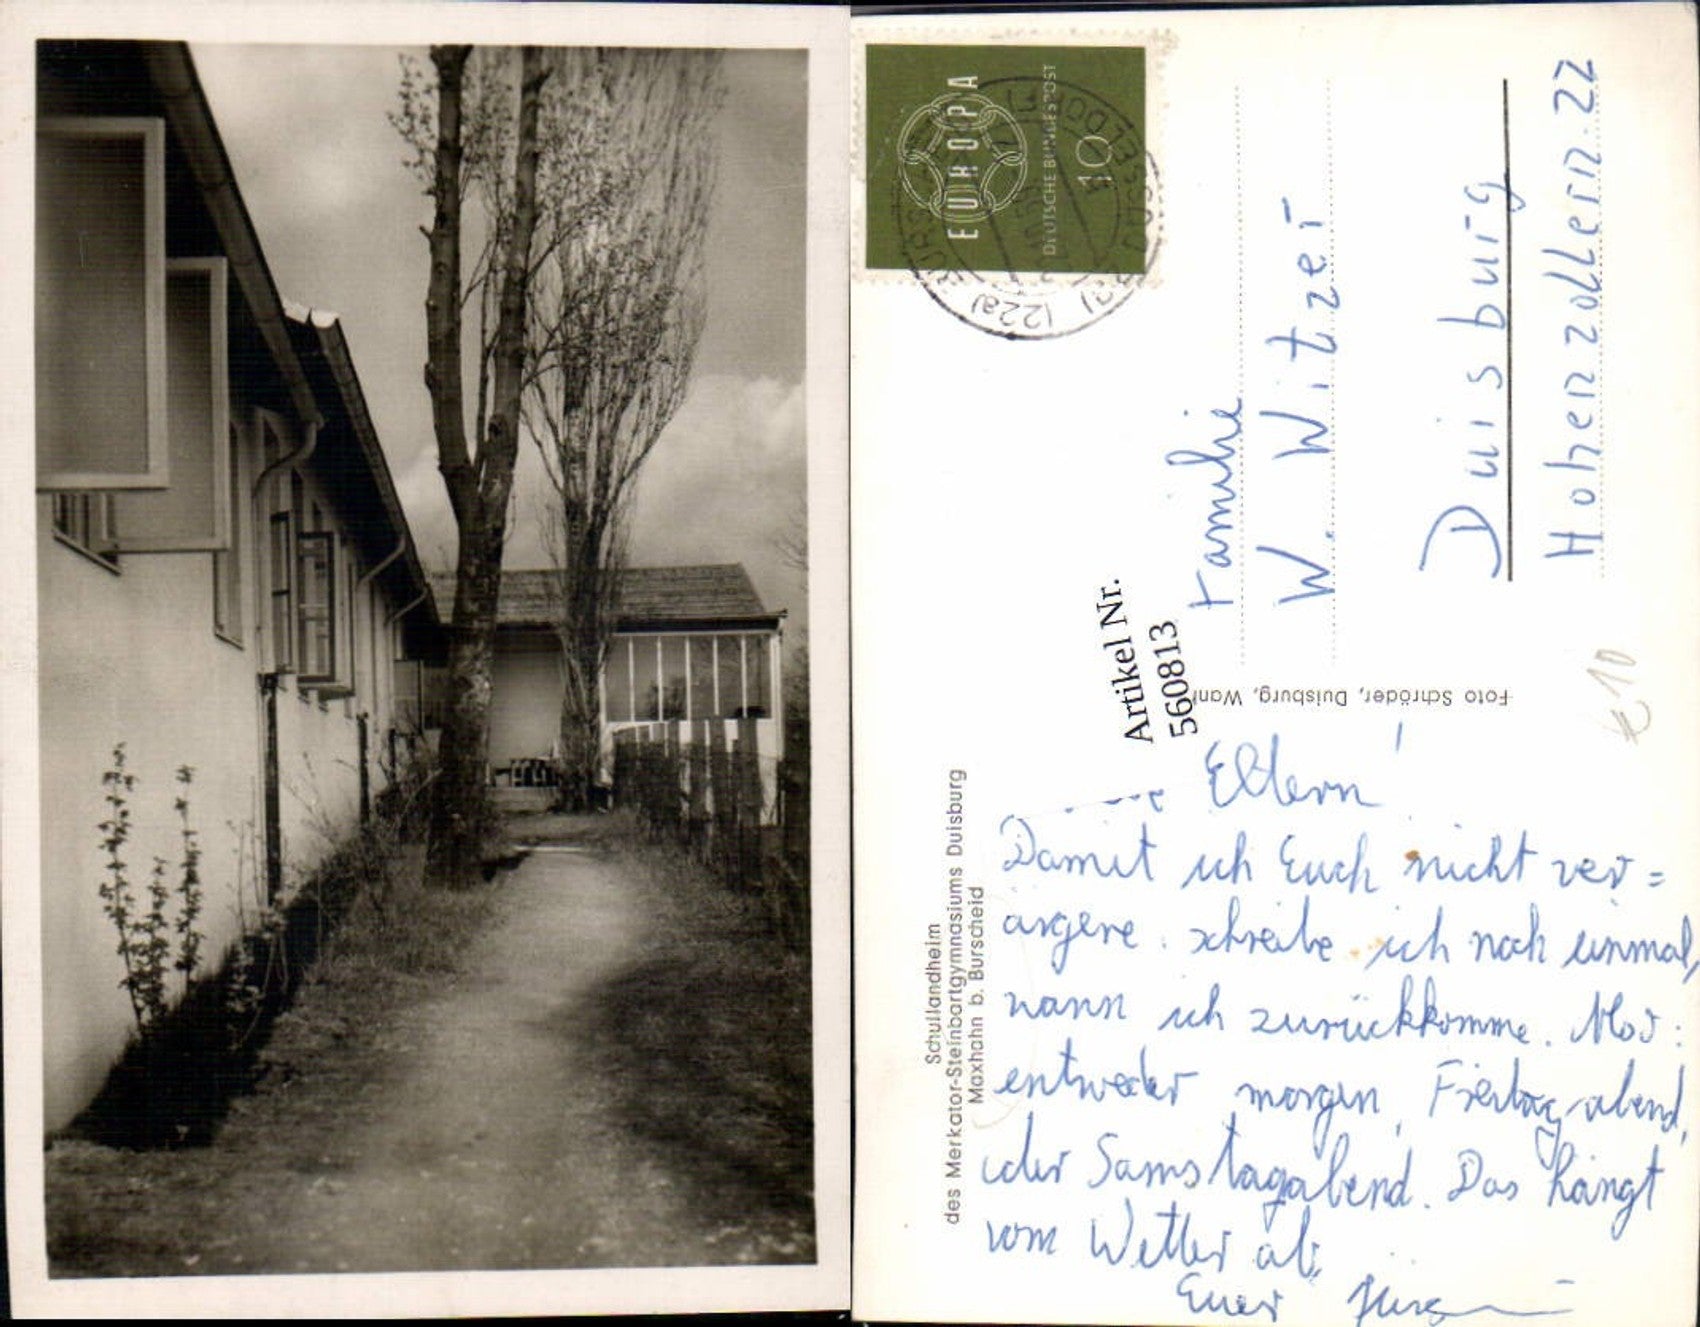 Schullandheim
des Merkator-Steinbartgymnasiums Duisburg
Maxhahn b. Burscheid
Eltern!
Damit ich Euch nicht ver=
ärgere, schreibe ich noch einmal,
wann ich zurückkomme.
entweder morgen, Freitag abend,
oder Samstagabend. Das hängt
vom Wetter ab.
Euer Jürgen
Foto Schröder, Duisburg, Wanh
Artikel Nr.
560813
EUROPA
DEUTSCHE BUNDESPOST
10
(22a)
Familie
W. Witzer
Duisburg
Hohenzollern. 22
€10